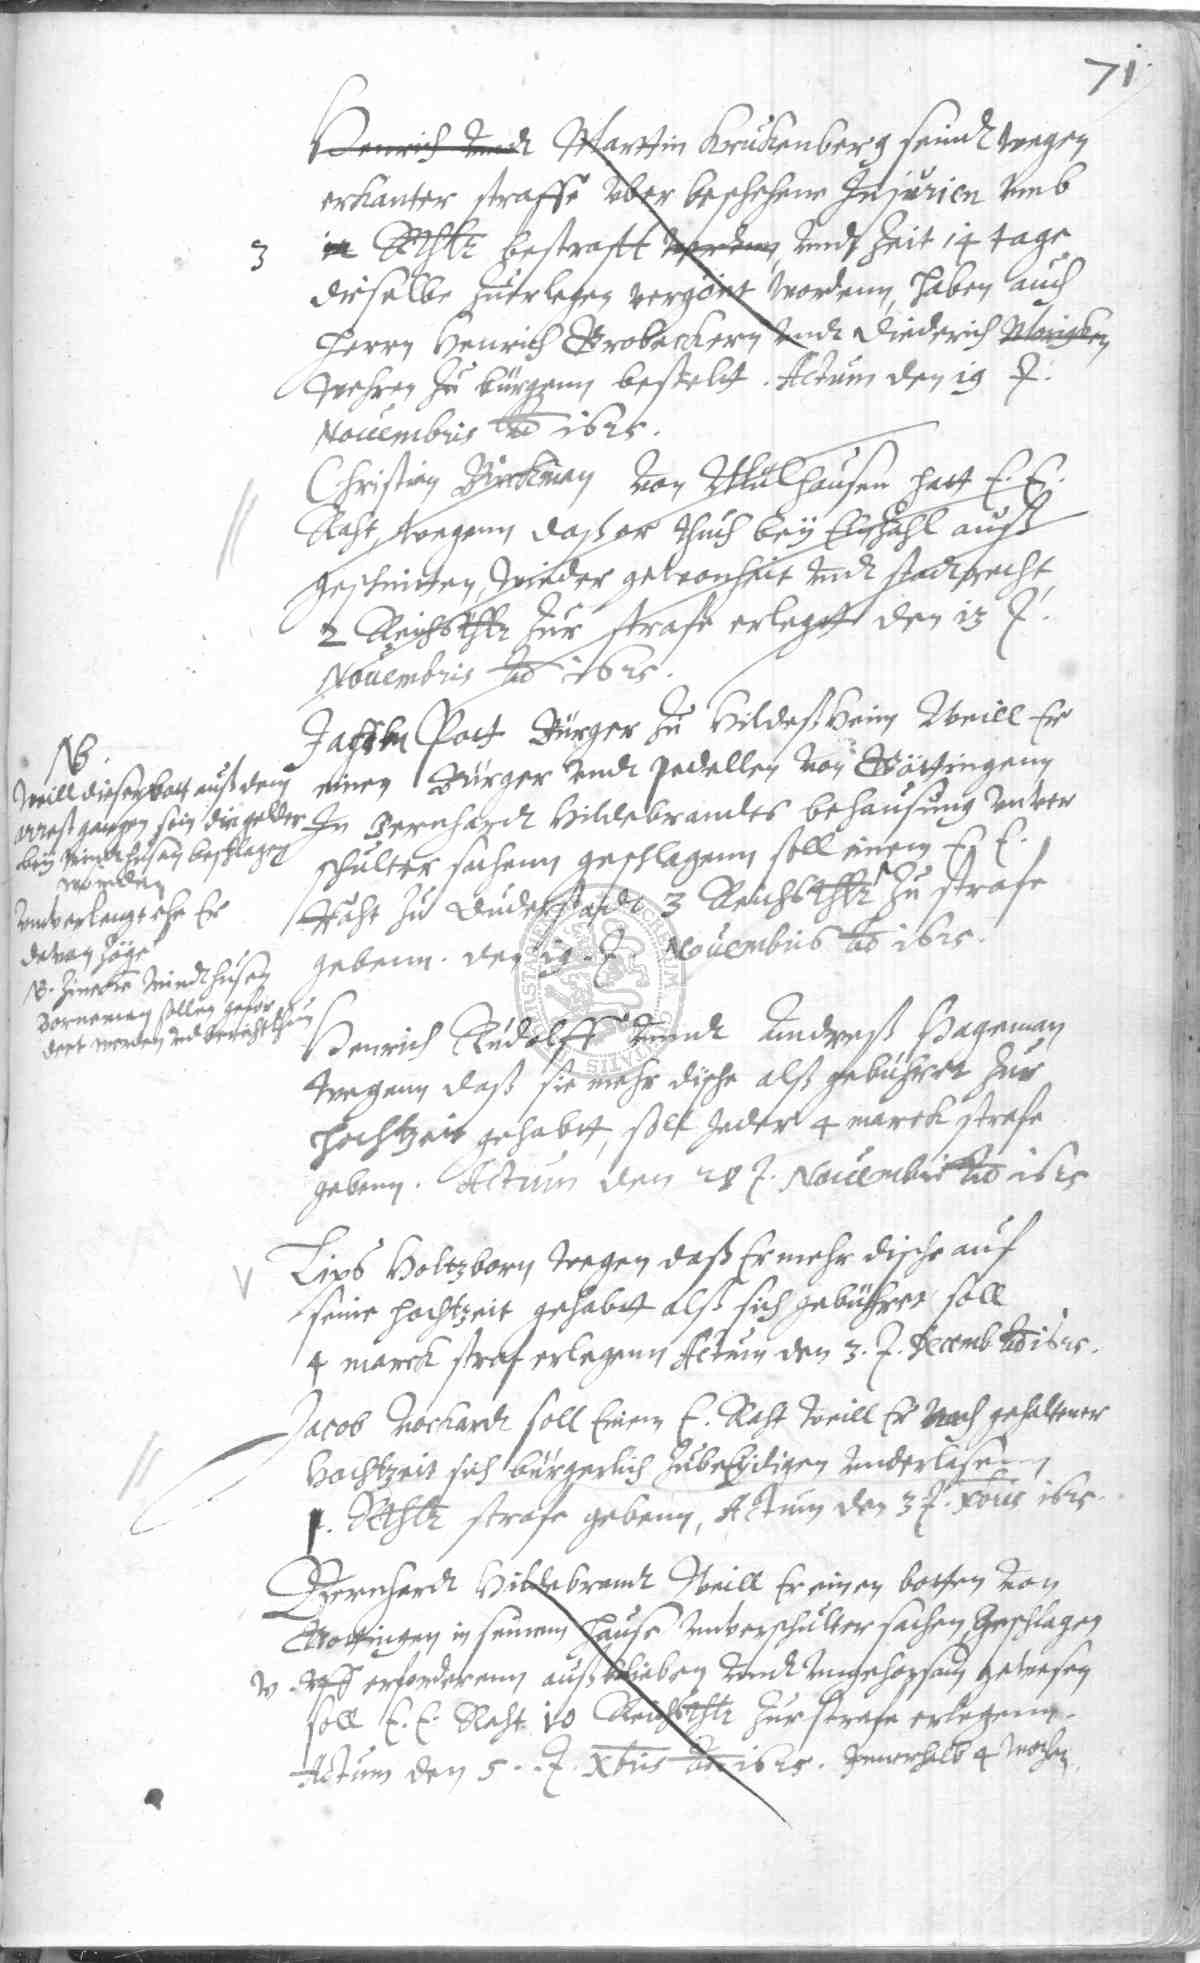 71
Henrich undt Martin Krukenberg seindt wegen
erkanter straffe uber beschehene Injurien umb
3 in Rthlr bestrafft worden, undt Zeit 14 tage
dieselbe zuerlegen vergönt wordenn, haben auch
Herrn Henrich Brobeckern undt Diederich
wehren zu bürgenn bestelt. Actum den 19 t.
Nouembris ao 1625.
Christian Birckman von Mulhausen hatt E. E.
Raht, wegenn daß er thuch bey Ehlzahl auß
geschnitten, wieder gewonheit undt stadtrecht
2 Reichsthlr zur strafe erlegtt den 13 t.
Nouembris ao 1625.
Jachim Pott Bürger zu Hildeßheim Weill Er
einen Bürger undt pedellen von Göttingenn
In Bernhardt Hildebrandts behausung unver
schulter sachenn geschlagenn soll einem E. E.
Raht zu Duderstadt 3 Reichsthlr zu strafe
gebenn. den 19. t. Nouembris ao 1625.
NB.
Weill dieser bott auß dem
arrest gangen sein die gelder
bey Windthusen beschlagen
worden
unverlengt ehe Er
davon zöge
NB. Windthusen
Borneman sollen gefor
dert werden und bericht thun
Henrich Rudolff undt Andreß Hageman
wegenn daß sie mehr dische alß gebühret zur
hochtzeit gehabtt, soll Jeder 4 marck strafe
gebenn. Actum den 28 t. Nouembris ao 1625
Lips Holtzborn wegen daß Er mehr dische auf
seine hochtzeit gehabtt alß sich gebühret soll
4 marck straf erlegenn Actum den 3. t. Decemb ao 1625.
Jacob Nockardt soll Einem E. Raht weill Er nach gehaltener
Hochtzeit sich bürgerlich zubeEydigen underlasenn
1. Rthlr strafe gebenn, Actum den 3 t. Xbris 1625.
Bernhardt Hildebrandt Weill Er einen botten von
Gottingen in seinem hause unverschulter sachen geschlagen
v uff erforderenn außblieben undt ungehorsam gewesen
soll E. E. Raht 10 Reichsthlr zur strafe erlegenn.
Actum den 5. t. Xbris ao 1625. Innerhalb 4 wochen